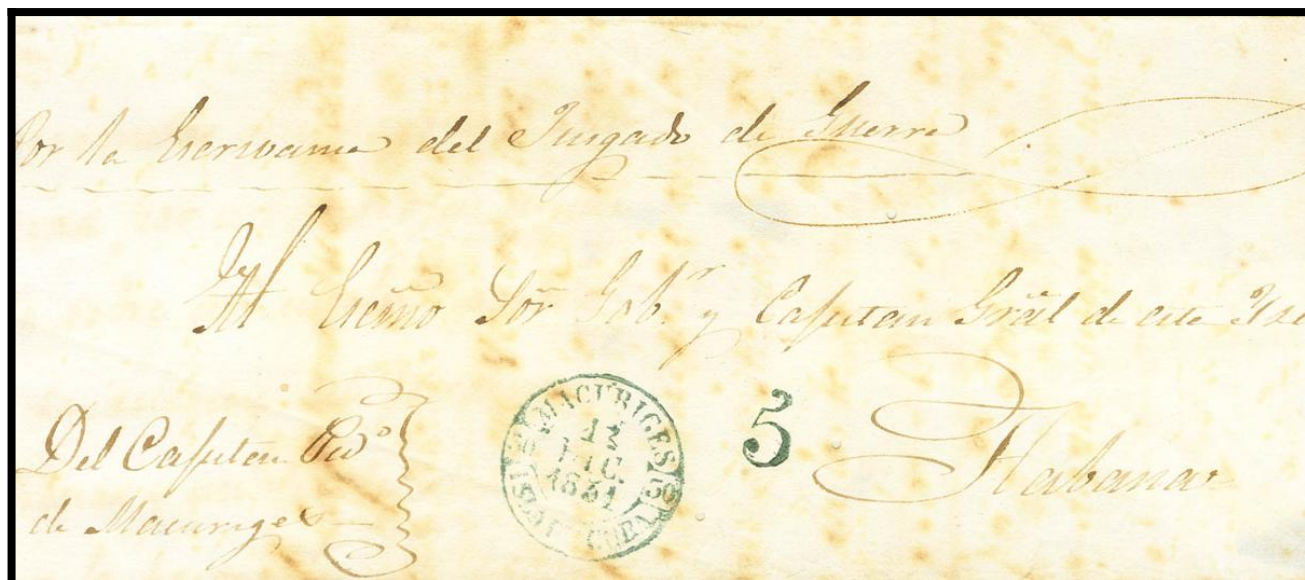 Por la Escribania del Juzgado de Guerra
Al Excmo Sor Gobr y Capitan Gral de esta Isla
Del Capitan Pdo
de Macuriges
MACURIGES
12
DIC.
1851
ISLA DE CUBA
5
Habana